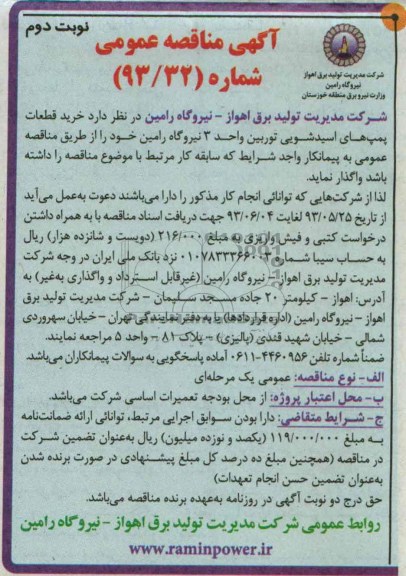 نوبت دوم
آگهی مناقصه عمومی
شماره (۹۳/۳۲)
شرکت مدیریت تولید برق اهواز
نیروگاه رامین
وزارت نیرو برق منطقه خوزستان
شرکت مدیریت تولید برق اهواز - نیروگاه رامین در نظر دارد خرید قطعات
پمپ‌های اسیدشویی توربین واحد ۳ نیروگاه رامین خود را از طریق مناقصه
عمومی به پیمانکار واجد شرایط که سابقه کار مرتبط با موضوع مناقصه را داشته
باشد واگذار نماید.
لذا از شرکت‌هایی که توانائی انجام کار مذکور را دارا می‌باشند دعوت به‌عمل می‌آید
از تاریخ ۹۳/۰۵/۲۵ لغایت ۹۳/۰۶/۰۴ جهت دریافت اسناد مناقصه با به همراه داشتن
درخواست کتبی و فیش واریزی به مبلغ ۲۱۶/۰۰۰ (دویست و شانزده هزار) ریال
به حساب سیبا شماره نزد بانک ملی ایران در وجه شرکت
مدیریت تولید برق اهواز - نیروگاه رامین (غیرقابل استرداد و واگذاری به‌غیر) به
آدرس: اهواز - کیلومتر ۲۰ جاده مسجد سلیمان - شرکت مدیریت تولید برق
اهواز - نیروگاه رامین (اداره قراردادها) یا به دفتر نمایندگی تهران - خیابان سهروردی
شمالی - خیابان شهید قندی (پالیزی) - پلاک ۸۱ - واحد ۵ مراجعه نمایند.
ضمناً شماره تلفن ۴۴۶۰۹۵۶-۰۶۱۱ آماده پاسخگویی به سوالات پیمانکاران می‌باشد.
الف- نوع مناقصه: عمومی یک مرحله‌ای
ب- محل اعتبار پروژه: از محل بودجه تعمیرات اساسی شرکت می‌باشد.
ج- شرایط متقاضی: دارا بودن سوابق اجرایی مرتبط، توانائی ارائه ضمانت‌نامه
به مبلغ ۱۱۹/۰۰۰/۰۰۰ (یکصد و نوزده میلیون) ریال به‌عنوان تضمین شرکت
در مناقصه (همچنین مبلغ ده درصد کل مبلغ پیشنهادی در صورت برنده شدن
به‌عنوان تضمین حسن انجام تعهدات)
حق درج دو نوبت آگهی در روزنامه به‌عهده برنده مناقصه می‌باشد.
روابط عمومی شرکت مدیریت تولید برق اهواز - نیروگاه رامین
www.raminpower.ir